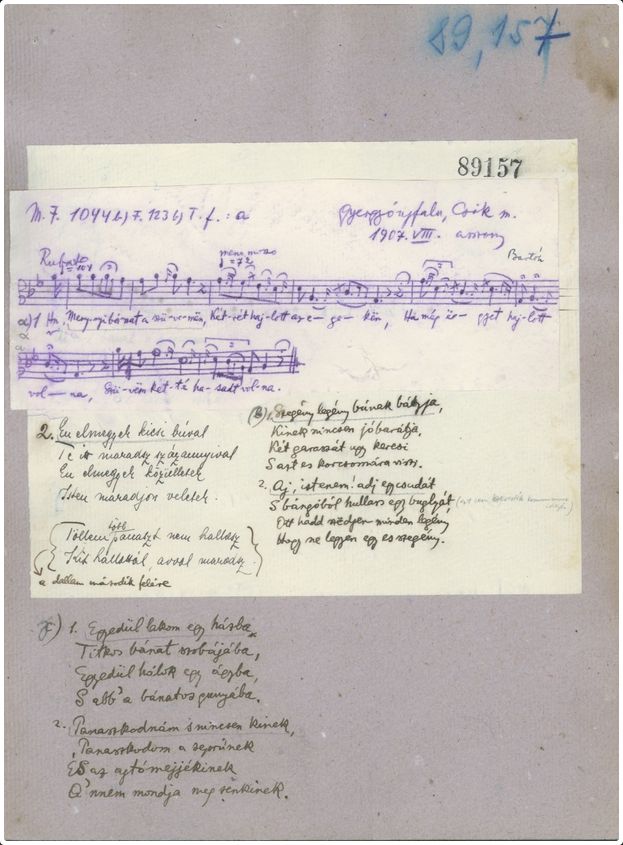 89,157
89157
M. F. 1044b) F. 1236) T. f. : a
Gyergyóújfalu, Csík m.
1907. VIII. asszony
Bartók
Rubato
meno mosso
a) 1 Ha, Mennyi bánat a szü-ve-mön, Két-rét haj-lott az e-ge-kön, Ha még ëc-czet haj-lott
vol-na, Szü-vem két-té ha-sadt vol-na.
2. Én elmegyek kicsi búval
Te itt maradsz százannyival
Én elmegyek közületek
Isten maradjon veletek.
több
Tőllem panaszt nem hallasz
Kit hallottál, avval maradsz.
a dallam második felére
b) 1. Szegény legény búnak bátyja,
Kinek nincsen jóbarátja,
Két garassát úgy keresi
S azt es korcsomára viszi.
2. Aj, istenem! adj egy csudát
S bángóból hullass egy buglyát
Ott hadd szedjen minden legény
Hogy ne legyen egy es szegény.
c) 1. Egyedül lakom egy házba
Titkos bánat szobájába,
Egyedül hálok egy ágyba,
S abb' a bánatos gunyába.
2. Panaszkodnám s nincsen kinek,
Panaszkodom a seprűnek
ES az ajtómejjékinek
A' nnem mondja meg senkinek.